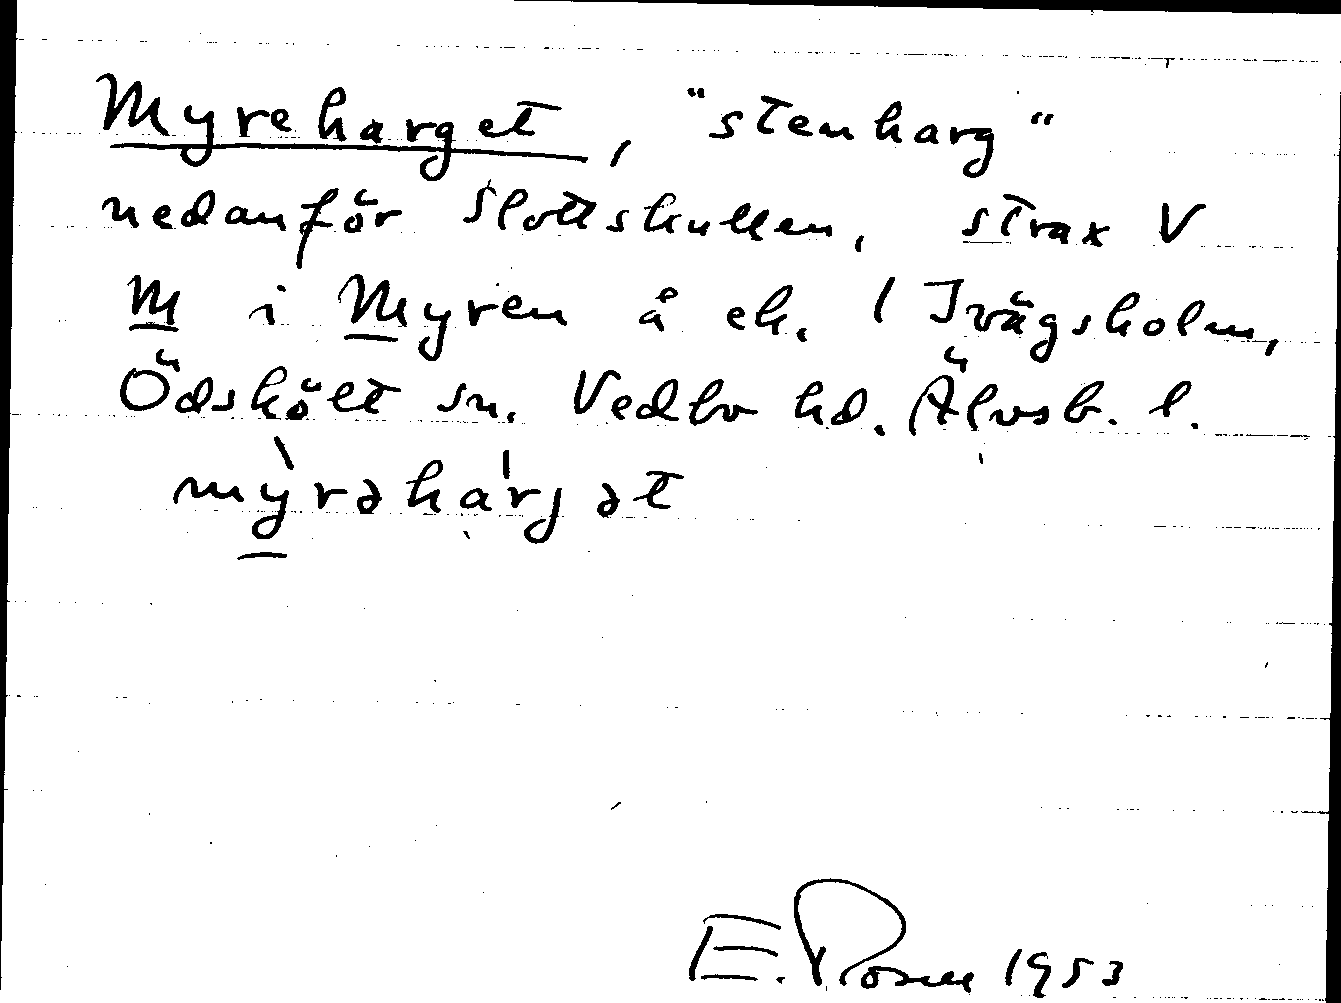 Myreharget, "stenharg"
nedanför Slottskullen, strax V
M i Myren å ek. l Ivägsholm,
Ödskölt sn. Vedbo hd. Älvsb. l.
mỳ̠rəhárjət
E. Rosell 1953